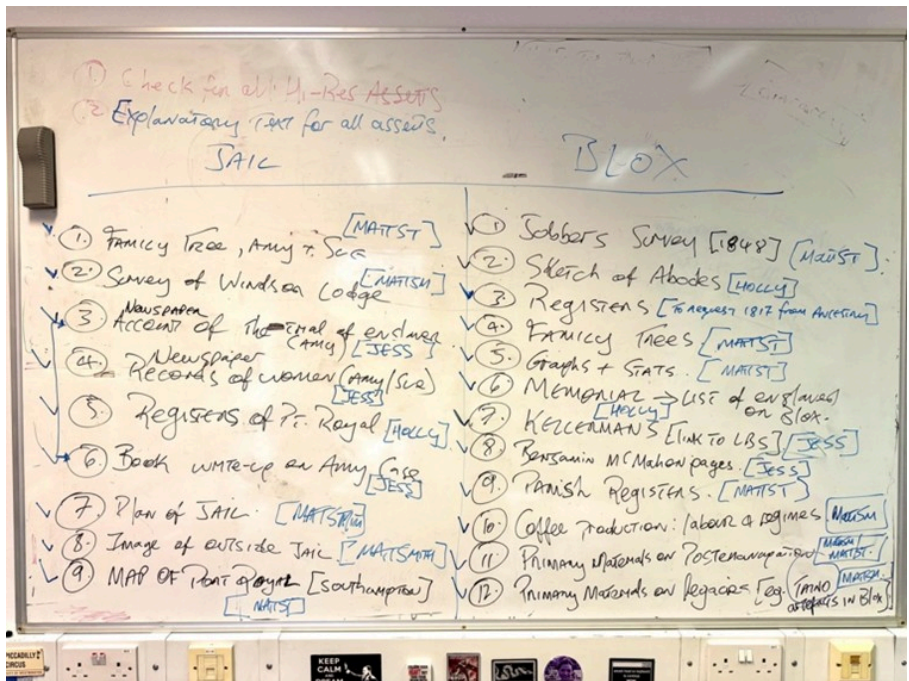 ① Check for all Hi-Res Assets
② Explanatory Text for all assets.
JAIL
① Family Tree, Amy + Sue [MATTST]
② Survey of Windsor Lodge [MATTSM]
③ Newspaper Account of the trial of enslaver (Amy) [JESS]
④ Newspaper Records of women (Amy/Sue) [JESS]
⑤ Registers of Pt. Royal [HOLLY]
⑥ Book write-up on Amy Case [JESS]
⑦ Plan of JAIL. [MATSM]
⑧ Image of outside JAIL [MATSMITH]
⑨ MAP OF PORT ROYAL [Southampton]
[MATST]
BLOX
① Jobbers Survey [1848] [MATTST]
② Sketch of Abodes [HOLLY]
③ Registers [To request 1817 from Ancestry]
④ Family Trees [MATTST]
⑤ Graphs + Stats. [MATTST]
⑥ MEMORIAL → LIST of enslaved on Blox.
[HOLLY]
⑦ KELLERMANS [LINK TO LBS] [JESS]
⑧ Benjamin McMahon pages. [JESS]
⑨ Parish Registers. [MATTST]
⑩ Coffee Production: labour & regimes [MATTSM]
⑪ Primary Materials on Postemancipation [MATSM/ MATTST.]
⑫ Primary Materials on Legacies [eg. TAINO artefacts in Blox] [MATTSM.]
PICCADILLY
CIRCUS
KEEP
CALM